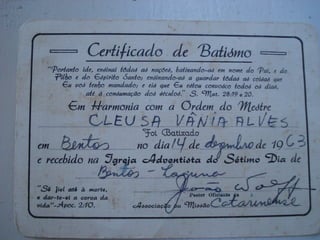 Certificado de Batismo
"Portanto ide, ensinai tôdas as nações, batizando-as em nome do Pai, e do
Filho e do Espírito Santo; ensinando-as a guardar tôdas as coisas que
Eu vos tenho mandado; e eis que Eu estou convosco todos os dias,
até a consumação dos séculos." S. Mat. 28:19 e 20.
Em Harmonia com a Ordem do Mestre
CLEUSA VÂNIA ALVES
Foi Batizado
em Bentos no dia 14 de dezembro de 1963
e recebido na Igreja Adventista do Sétimo Dia de
Bentos - Laguna
"Sê fiel até à morte,
e dar-te-ei a coroa da
vida"-Apoc. 2:10.
João Wolff
Pastor Oficiante
Associação ou Missão Catarinense